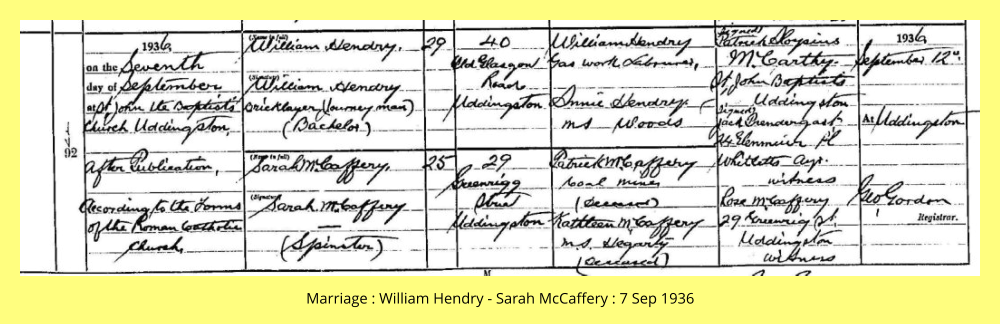 92
1936,
on the Seventh
day of September
at St John the Baptists'
Church Uddingston,
After Publication,
According to the Forms
of the Roman Catholic
Church
(Name in full)
William Hendry.
(Signature)
William Hendry
Bricklayer (Journeyman)
(Bachelor)
(Name in full)
Sarah McCaffery.
(Signature)
Sarah McCaffery
(Spinster)
29
25
40
Old Glasgow
Road
Uddingston
29
Greenrigg
Street
Uddingston
William Hendry
Gas work Labourer,
Annie Hendry
ms Woods
Patrick McCaffery
Coal miner
(deceased)
Kathleen McCaffery
m.s. Hegarty
(deceased)
(Signed)
Patrick Aloysius
McCarthy.
St. John Baptists
Uddingston
(Signed)
Jack Prendergast
Pl
Whitletts Ayr.
witness
Rose McCaffery
29 Greenrig St.
Uddingston
witness
1936,
September 12th
At Uddingston
Geo Gordon
Registrar.
Marriage : William Hendry - Sarah McCaffery : 7 Sep 1936